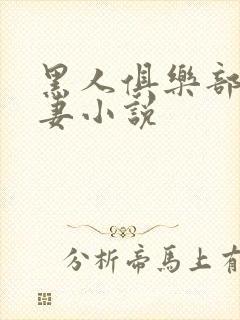 黑人俱樂部
妻小説
分析帝馬上有